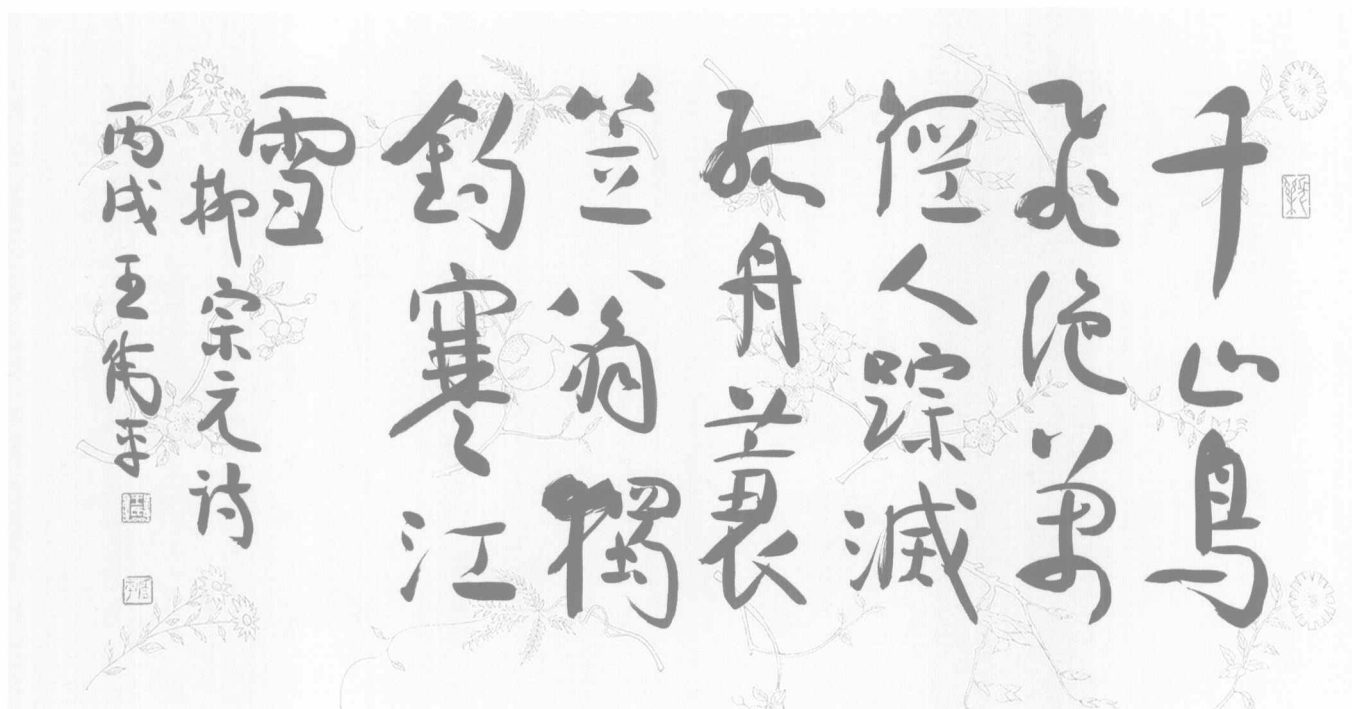 千山鳥
飛絕萬
徑人踪滅
孤舟蓑
笠翁獨
釣寒江
雪
柳宗元詩
丙戌王衛平